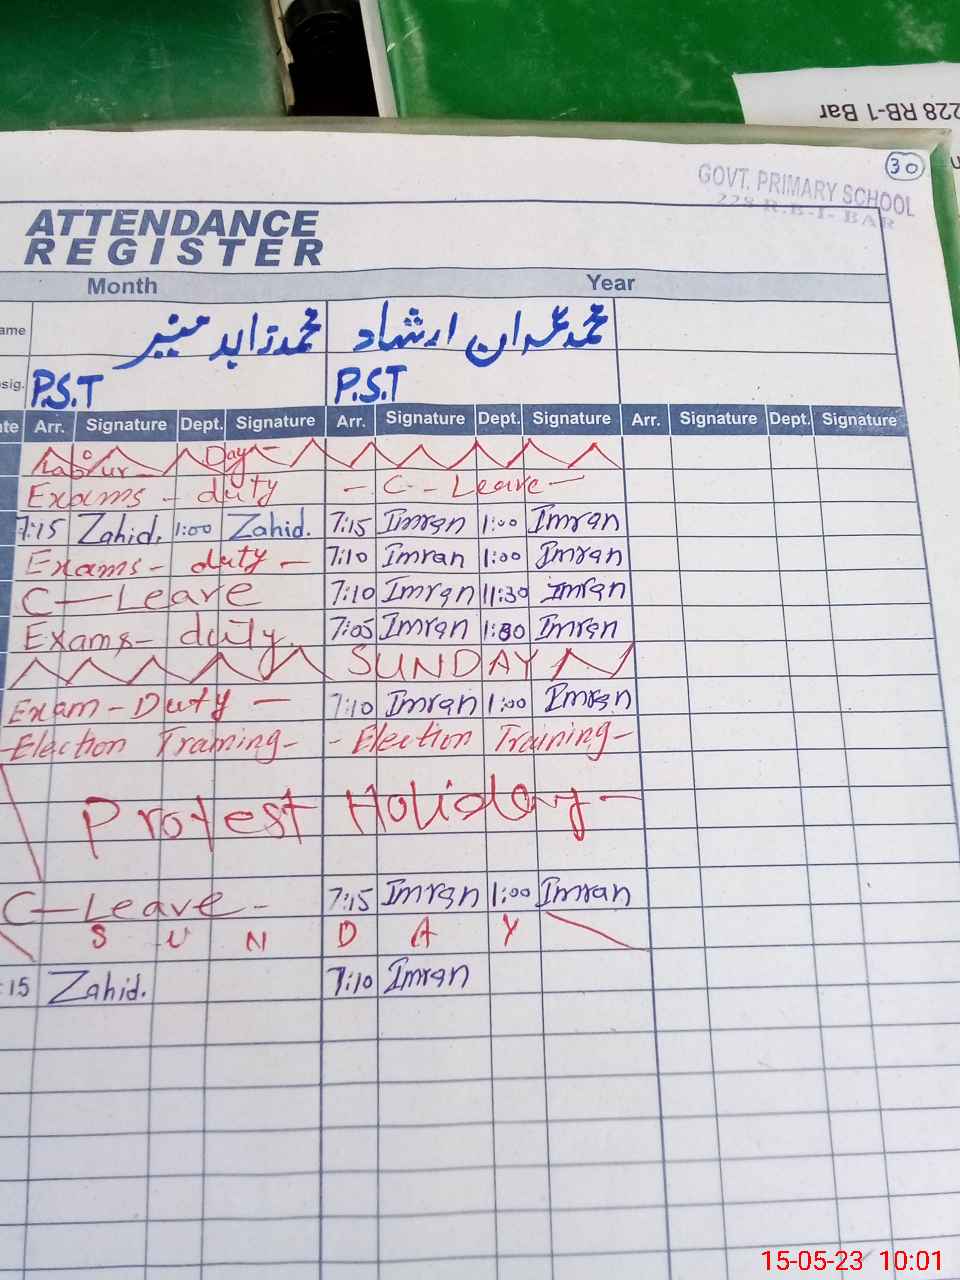 228 RB-1 Bar
30
GOVT. PRIMARY SCHOOL
228 R.B-I- BAR
ATTENDANCE
REGISTER
Month Year
ame محمد زاہد منیر محمد عمران ارشاد
sig. P.S.T P.S.T
ate Arr. Signature Dept. Signature Arr. Signature Dept. Signature Arr. Signature Dept. Signature
Labour Day
Exams - duty - C - Leave -
7:15 Zahid. 1:00 Zahid. 7:15 Imran 1:00 Imran
Exams - duty - 7:10 Imran 1:00 Imran
C - Leave 7:10 Imran 11:30 Imran
Exams - duty. 7:05 Imran 1:30 Imran
SUNDAY
Exam - Duty - 7:10 Imran 1:00 Imran
- Election Training - - Election Training -
Protest Holiday -
C - Leave - 7:15 Imran 1:00 Imran
S U N D A Y
:15 Zahid. 7:10 Imran
15-05-23 10:01